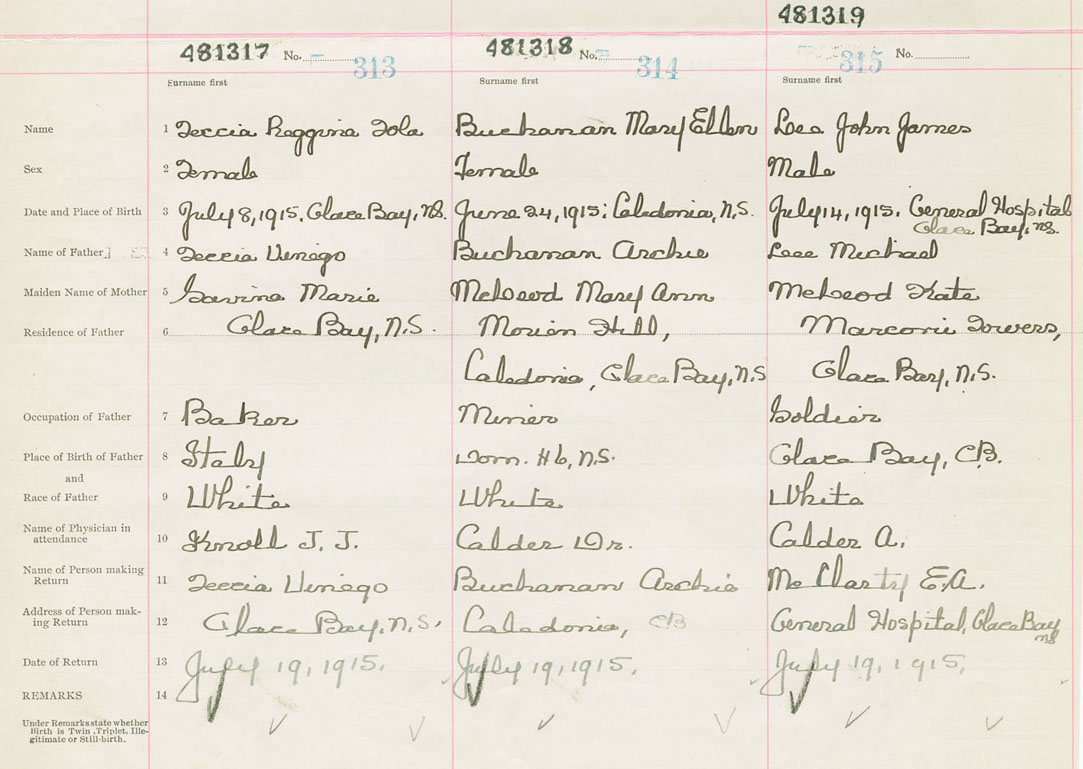 481319
481317 No. 313 481318 No. 314 315 No.
Surname first Surname first Surname first
Name 1 Teccia Reggina Iola Buchanan Mary Ellen Lee John James
Sex 2 Female Female Male
Date and Place of Birth 3 July 8, 1915, Glace Bay, N.S. June 24, 1915; Caledonia, N.S. July 14, 1915, General Hospital
Glace Bay, N.S.
Name of Father 4 Teccia Buchanan Archie Lee Michael
Maiden Name of Mother 5 Savina Marie McLeod Mary Ann McLeod Kate
Residence of Father 6 Glace Bay, N.S. Morien Hill, Marconi Towers,
Caledonia, Glace Bay, N.S. Glace Bay, N.S.
Occupation of Father 7 Baker Miner Soldier
Place of Birth of Father 8 Italy Dom. No 6, N.S. Glace Bay, C.B.
and
Race of Father 9 White White White
Name of Physician in
attendance 10 Knoll J. J. Calder Dr. Calder A.
Name of Person making
Return 11 Teccia Buchanan Archie McClarty E.A.
Address of Person mak-
ing Return 12 Glace Bay, N.S. Caledonia, CB General Hospital, Glace Bay
NS
Date of Return 13 July 19, 1915. July 19, 1915. July 19, 1915.
REMARKS 14
Under Remarks state whether
Birth is Twin, Triplet, Ille-
gitimate or Still-birth.